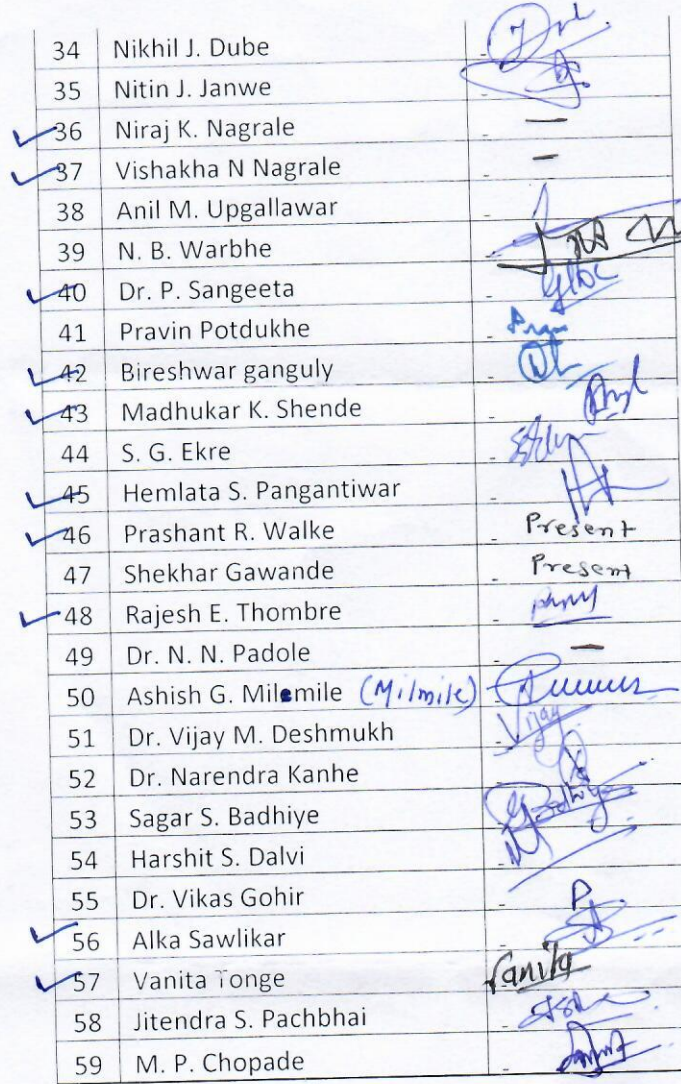 34 Nikhil J. Dube -
35 Nitin J. Janwe -
36 Niraj K. Nagrale - —
37 Vishakha N Nagrale - —
38 Anil M. Upgallawar -
39 N. B. Warbhe -
40 Dr. P. Sangeeta -
41 Pravin Potdukhe -
42 Bireshwar ganguly -
43 Madhukar K. Shende -
44 S. G. Ekre -
45 Hemlata S. Pangantiwar -
46 Prashant R. Walke - Present
47 Shekhar Gawande - Present
48 Rajesh E. Thombre -
49 Dr. N. N. Padole - —
50 Ashish G. Milemile (Milmile) -
51 Dr. Vijay M. Deshmukh - Vijay
52 Dr. Narendra Kanhe -
53 Sagar S. Badhiye - Badhiye
54 Harshit S. Dalvi -
55 Dr. Vikas Gohir - P
56 Alka Sawlikar -
57 Vanita Tonge - Vanita
58 Jitendra S. Pachbhai -
59 M. P. Chopade -